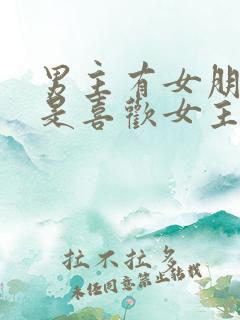 男主有女朋
是喜歡女主
扯不扯多
未经同意禁止转载